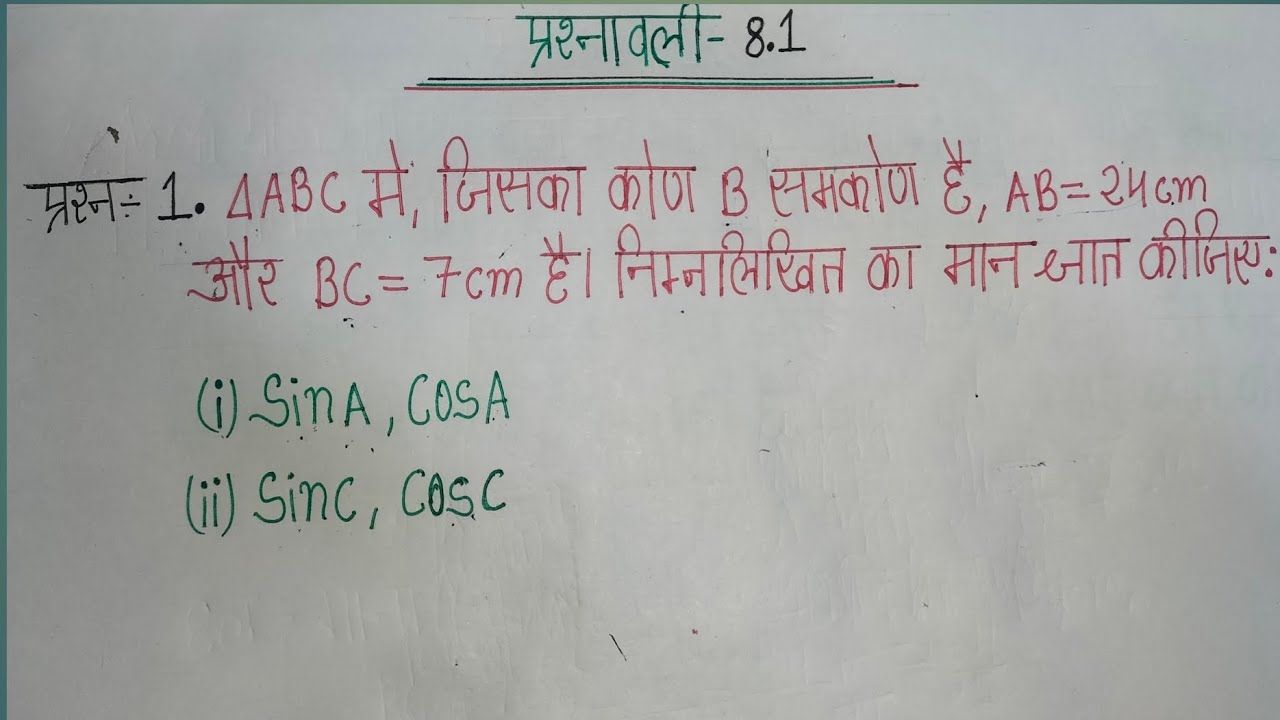 प्रश्नावली- 8.1
प्रश्न÷ 1. ΔABC में, जिसका कोण B समकोण है, AB = 24cm
और BC = 7cm है। निम्नलिखित का मान ज्ञात कीजिए:
(i) SinA, COSA
(ii) SinC, COSC